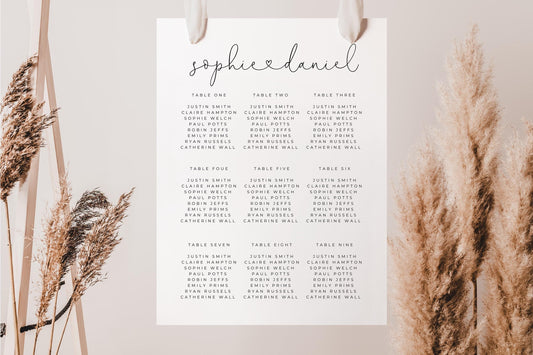 sophie♡daniel
TABLE ONE
JUSTIN SMITH
CLAIRE HAMPTON
SOPHIE WELCH
PAUL POTTS
ROBIN JEFFS
EMILY PRIMS
RYAN RUSSELS
CATHERINE WALL
TABLE TWO
JUSTIN SMITH
CLAIRE HAMPTON
SOPHIE WELCH
PAUL POTTS
ROBIN JEFFS
EMILY PRIMS
RYAN RUSSELS
CATHERINE WALL
TABLE THREE
JUSTIN SMITH
CLAIRE HAMPTON
SOPHIE WELCH
PAUL POTTS
ROBIN JEFFS
EMILY PRIMS
RYAN RUSSELS
CATHERINE WALL
TABLE FOUR
JUSTIN SMITH
CLAIRE HAMPTON
SOPHIE WELCH
PAUL POTTS
ROBIN JEFFS
EMILY PRIMS
RYAN RUSSELS
CATHERINE WALL
TABLE FIVE
JUSTIN SMITH
CLAIRE HAMPTON
SOPHIE WELCH
PAUL POTTS
ROBIN JEFFS
EMILY PRIMS
RYAN RUSSELS
CATHERINE WALL
TABLE SIX
JUSTIN SMITH
CLAIRE HAMPTON
SOPHIE WELCH
PAUL POTTS
ROBIN JEFFS
EMILY PRIMS
RYAN RUSSELS
CATHERINE WALL
TABLE SEVEN
JUSTIN SMITH
CLAIRE HAMPTON
SOPHIE WELCH
PAUL POTTS
ROBIN JEFFS
EMILY PRIMS
RYAN RUSSELS
CATHERINE WALL
TABLE EIGHT
JUSTIN SMITH
CLAIRE HAMPTON
SOPHIE WELCH
PAUL POTTS
ROBIN JEFFS
EMILY PRIMS
RYAN RUSSELS
CATHERINE WALL
TABLE NINE
JUSTIN SMITH
CLAIRE HAMPTON
SOPHIE WELCH
PAUL POTTS
ROBIN JEFFS
EMILY PRIMS
RYAN RUSSELS
CATHERINE WALL